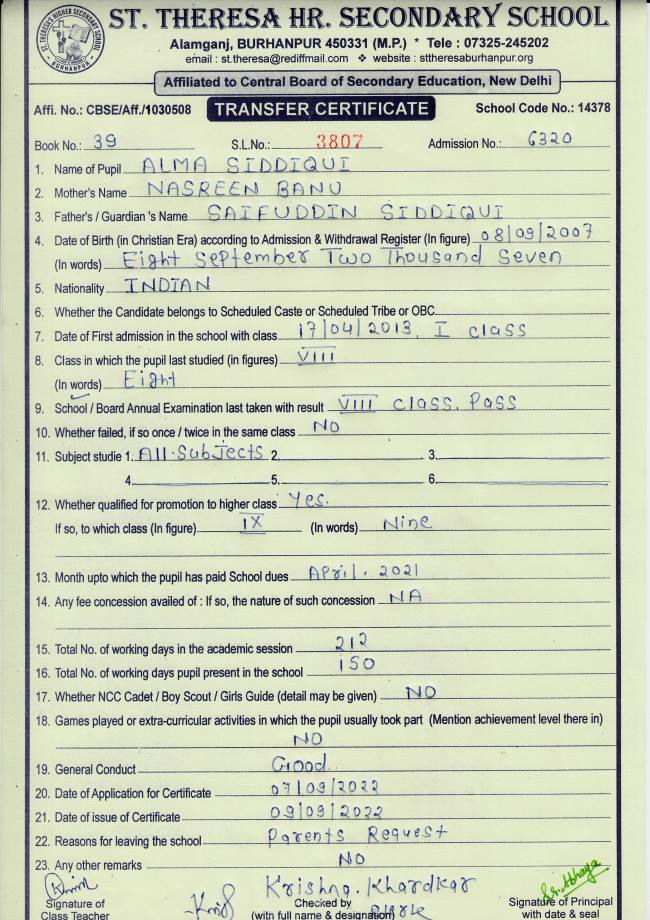 ST. THERESA HR. SECONDARY SCHOOL
Alamganj, BURHANPUR 450331 (M.P.) * Tele : 07325-245202
email : st.theresa@rediffmail.com ❖ website : sttheresaburhanpur.org
Affiliated to Central Board of Secondary Education, New Delhi
Affi. No.: CBSE/Aff./1030508 TRANSFER CERTIFICATE School Code No.: 14378
Book No.: 39 S.L.No.: 3807 Admission No.: 6320
1. Name of Pupil ALMA SIDDIQUI
2. Mother's Name NASREEN BANU
3. Father's / Guardian 's Name SAIFUDDIN SIDDIQUI
4. Date of Birth (in Christian Era) according to Admission & Withdrawal Register (In figure) 08/09/2007
(In words) Eight September Two Thousand Seven
5. Nationality INDIAN
6. Whether the Candidate belongs to Scheduled Caste or Scheduled Tribe or OBC
7. Date of First admission in the school with class 17/04/2013, I class
8. Class in which the pupil last studied (in figures) VIII
(In words) Eight
9. School / Board Annual Examination last taken with result VIII class. Pass
10. Whether failed, if so once / twice in the same class NO
11. Subject studie 1. All Subjects 2. 3.
4. 5. 6.
12. Whether qualified for promotion to higher class Yes.
If so, to which class (In figure) IX (In words) Nine
13. Month upto which the pupil has paid School dues April. 2021
14. Any fee concession availed of : If so, the nature of such concession NA
15. Total No. of working days in the academic session 212
16. Total No. of working days pupil present in the school 150
17. Whether NCC Cadet / Boy Scout / Girls Guide (detail may be given) NO
18. Games played or extra-curricular activities in which the pupil usually took part (Mention achievement level there in)
NO
19. General Conduct Good
20. Date of Application for Certificate 07/09/2022
21. Date of issue of Certificate 09/09/2022
22. Reasons for leaving the school Parents Request
23. Any other remarks NO
Krishna. Khardkar
Signature of Checked by Signature of Principal
Class Teacher (with full name & designation) with date & seal